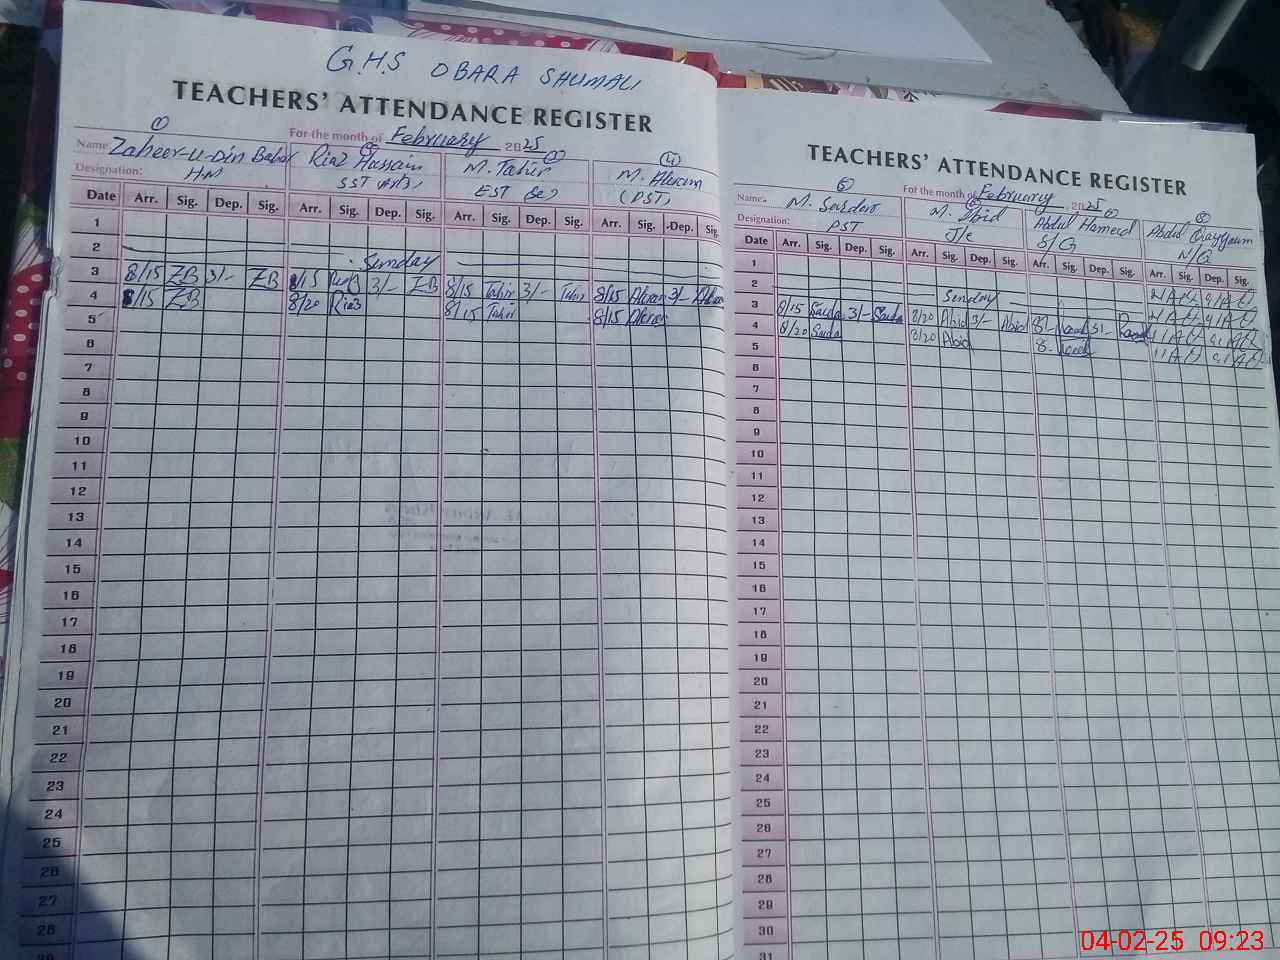 G.H.S OBARA SHUMALI
TEACHERS' ATTENDANCE REGISTER
For the month of February 2025
Name: Zaheer-u-Din Babar Riaz Hussain M. Tahir M. Akram
Designation: HM SST (Arts) EST (Sc) (PST)
① ④
Date Arr. Sig. Dep. Sig. Arr. Sig. Dep. Sig. Arr. Sig. Dep. Sig. Arr. Sig. Dep. Sig.
1
2 Sunday
3 8/15 ZB 3/- ZB 8/15 3/- 8/15 Tahir 3/- Tahir 8/15 Akram 3/- Akram
4 8/15 ZB 8/20 Riaz 8/15 Tahir 8/15 Akram
5
6
7
8
9
10
11
12
13
14
15
16
17
18
19
20
21
22
23
24
25
26
27
28
29
TEACHERS' ATTENDANCE REGISTER
For the month of February 2025
⑤
Name: M. Sardar M. Abid Abdul Hameed Abdul Qayyum
Designation: PST J/c S/G N/Q
Date Arr. Sig. Dep. Sig. Arr. Sig. Dep. Sig. Arr. Sig. Dep. Sig. Arr. Sig. Dep. Sig.
1
2 Sunday
3 8/15 3/- 8/20 Abid 3/- Abid 8/- 3/-
4 8/20 8/20 Abid 8-
5
6
7
8
9
10
11
12
13
14
15
16
17
18
19
20
21
22
23
24
25
26
27
28
29
30
31
04-02-25 09:23